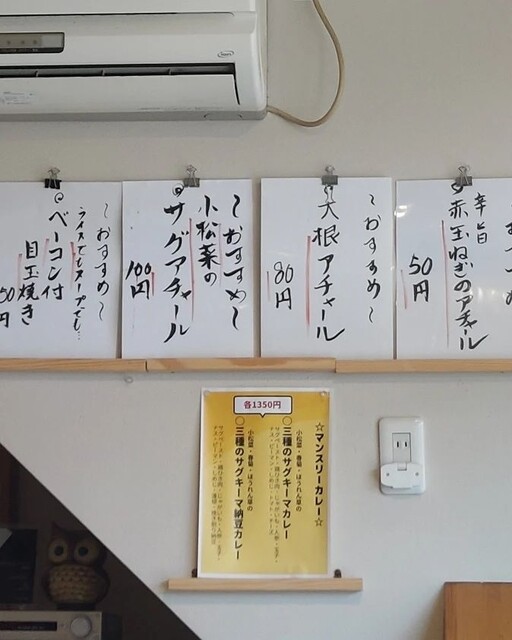 おすす
辛旨
赤玉ねぎのアチャール
50円
〜おすすめ〜
大根アチャール
80円
〜おすすめ〜
小松菜の
サグアチャール
100円
〜おすすめ〜
ライスでもスープでも…
ベーコン付
目玉焼き
50円
各1350円
☆マンスリーカレー☆
小松菜・春菊・ほうれん草の
〇三種のサグキーマカレー
小松菜・春菊・ほうれん草の
〇三種のサグキーマ納豆カレー